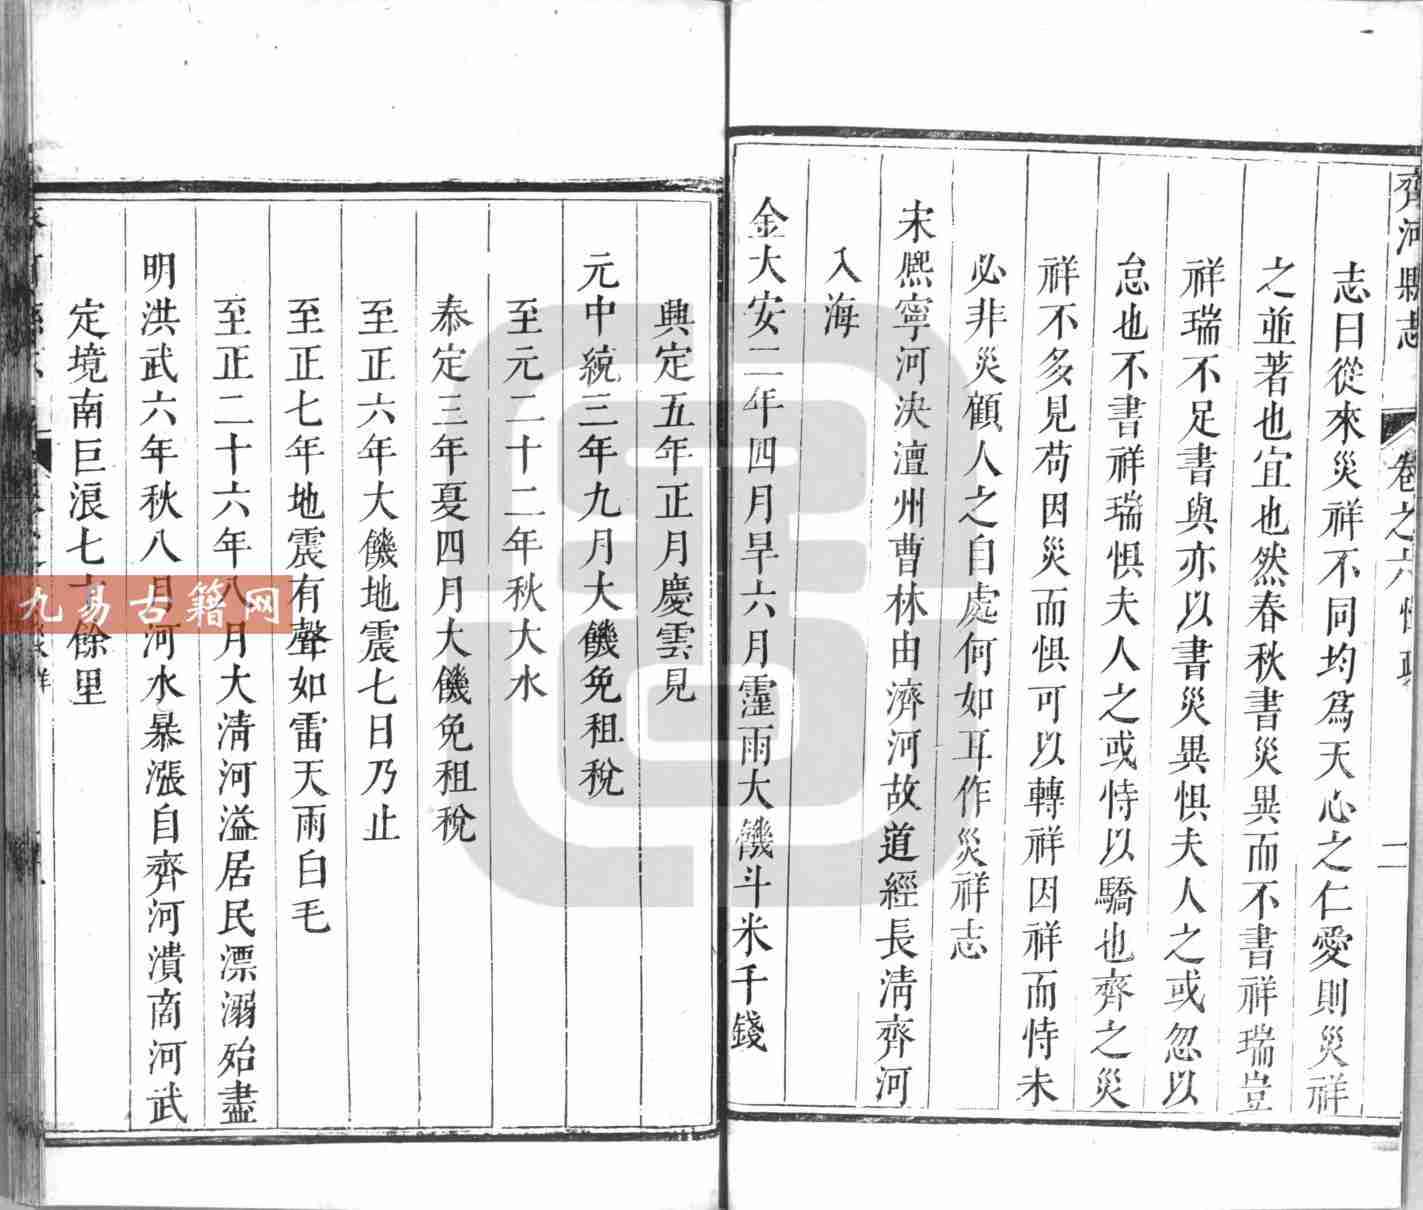 齊河縣志
卷之六
二
志曰從來災祥不同均爲天心之仁愛則災祥
之並著也宜也然春秋書災異而不書祥瑞豈
祥瑞不足書與亦以書災異惧夫人之或忽以
怠也不書祥瑞惧夫人之或恃以驕也齊之災
祥不多見苟因災而惧可以轉祥因祥而恃未
必非災顧人之自處何如耳作災祥志
宋熈寧河決澶州曹林由濟河故道經長淸齊河
入海
金大安二年四月旱六月霪雨大饑斗米千錢
興定五年正月慶雲見
元中統三年九月大饑免租稅
至元二十二年秋大水
泰定三年夏四月大饑免租稅
至正六年大饑地震七日乃止
至正七年地震有聲如雷天雨白毛
至正二十六年八月大淸河溢居民漂溺殆盡
明洪武六年秋八月河水暴漲自齊河潰商河武
定境南巨浪七十餘里
九易古籍网